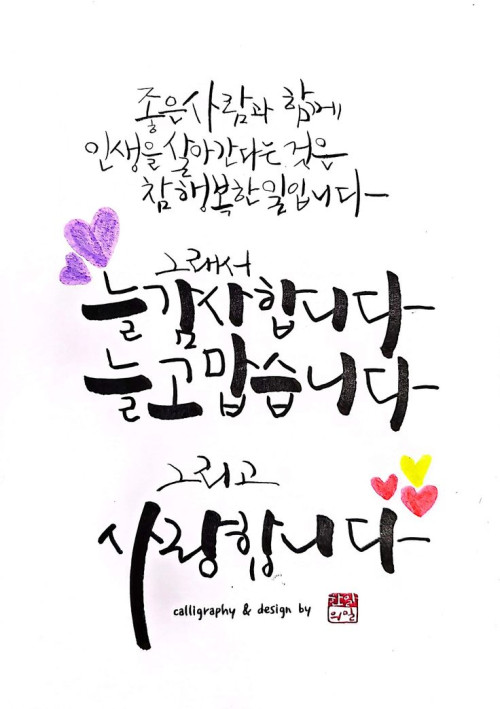 좋은사람과 함께
인생을 살아간다는 것은
참 행복한 일입니다
그래서
늘 감사합니다
늘 고맙습니다
그리고
사랑합니다
calligraphy & design by